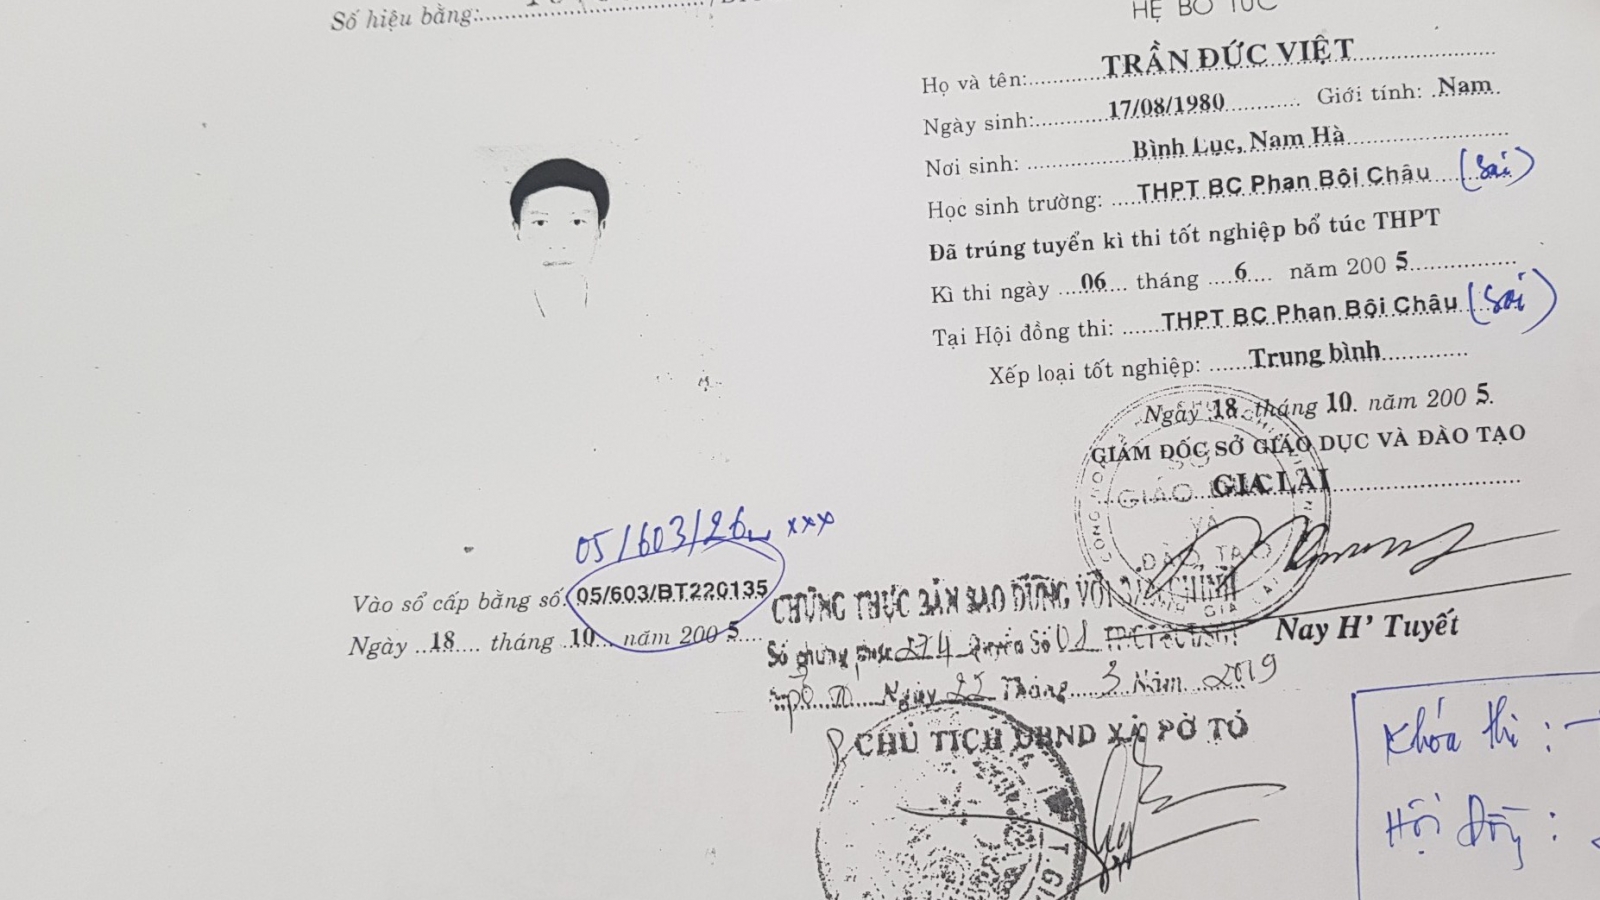 Số hiệu bằng:
HỆ BỔ TÚC
Họ và tên: TRẦN ĐỨC VIỆT
Ngày sinh: 17/08/1980 Giới tính: Nam
Nơi sinh: Bình Lục, Nam Hà
Học sinh trường: THPT BC Phan Bội Châu (sai)
Đã trúng tuyển kì thi tốt nghiệp bổ túc THPT
Kì thi ngày 06 tháng 6 năm 2005
Tại Hội đồng thi: THPT BC Phan Bội Châu (sai)
Xếp loại tốt nghiệp: Trung bình
Ngày 18 tháng 10 năm 2005.
GIÁM ĐỐC SỞ GIÁO DỤC VÀ ĐÀO TẠO
GIA LAI
SỞ
GIÁO DỤC
VÀ
ĐÀO TẠO
Nay H' Tuyết
05/603/26 xxx
Vào sổ cấp bằng số: 05/603/BT220135
Ngày 18 tháng 10 năm 2005
CHỨNG THỰC BẢN SAO ĐÚNG VỚI BẢN CHÍNH
Số chứng thực 274 Quyển Số 01
Ngày 22 Tháng 3 Năm 2019
CHỦ TỊCH UBND XÃ PỜ TÓ
Khóa thi :
Hội đồng :